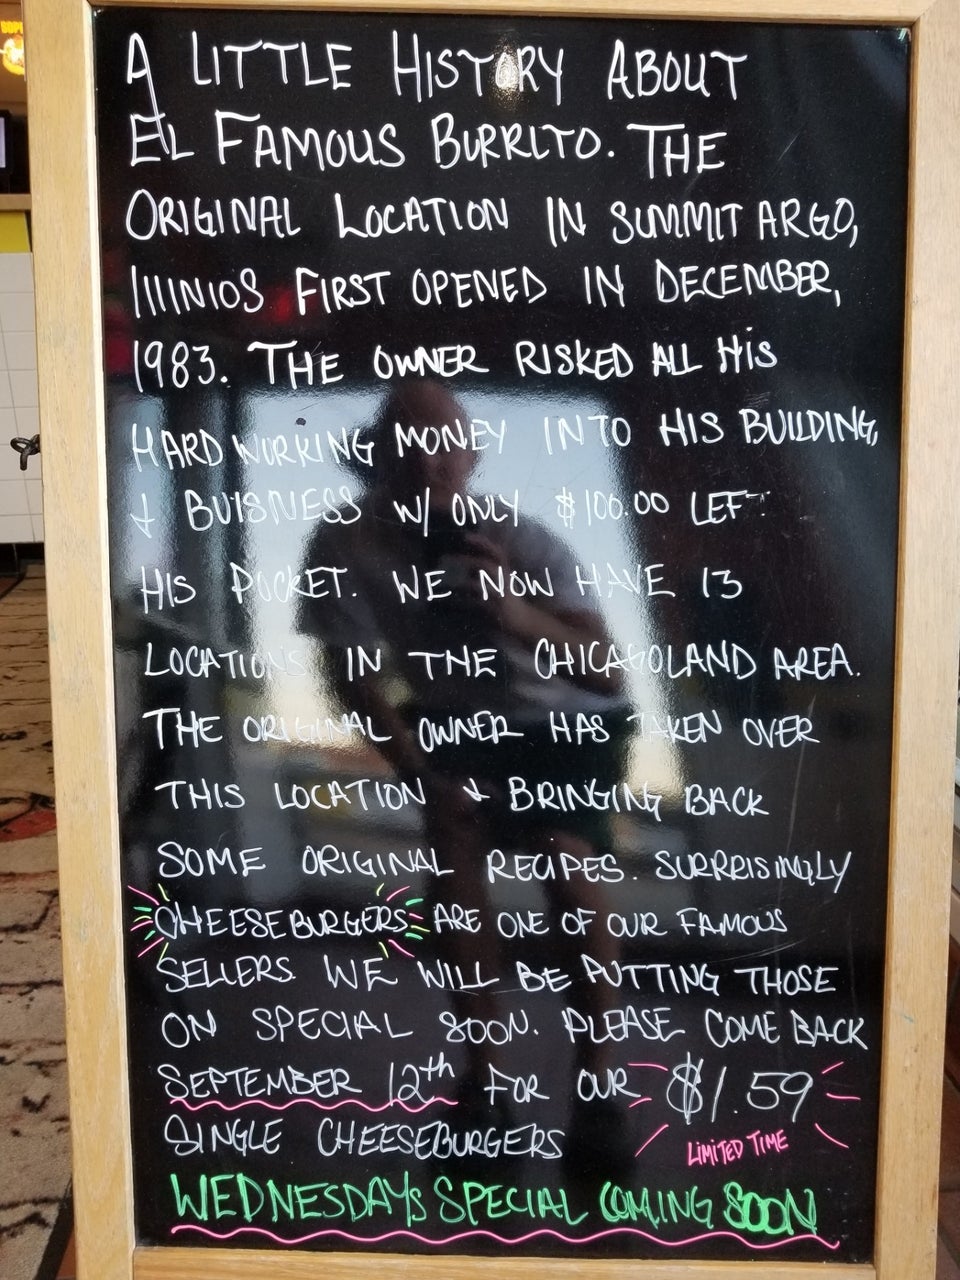 A LITTLE HISTORY ABOUT
EL FAMOUS BURRITO. THE
ORIGINAL LOCATION IN SUMMIT ARGO,
IllINIOS FIRST OPENED IN DECEMBER,
1983. THE OWNER RISKED ALL HiS
HARD WORKING MONEY INTO HIS BUILDING,
& BUISNESS W/ ONLY $100.00 LEFT
HIS POCKET. WE NOW HAVE 13
LOCATIONS IN THE CHICAGOLAND AREA.
THE ORIGINAL OWNER HAS TAKEN OVER
THIS LOCATION & BRINGING BACK
SOME ORIGINAL RECIPES. SURRRISINGLY
CHEESEBURGERS ARE ONE OF OUR FAMOUS
SELLERS. WE WILL BE PUTTING THOSE
ON SPECIAL SOON. PLEASE COME BACK
SEPTEMBER 12th FOR OUR $1.59
SINGLE CHEESEBURGERS LIMITED TIME
WEDNESDAYs SPECIAL COMING SOON